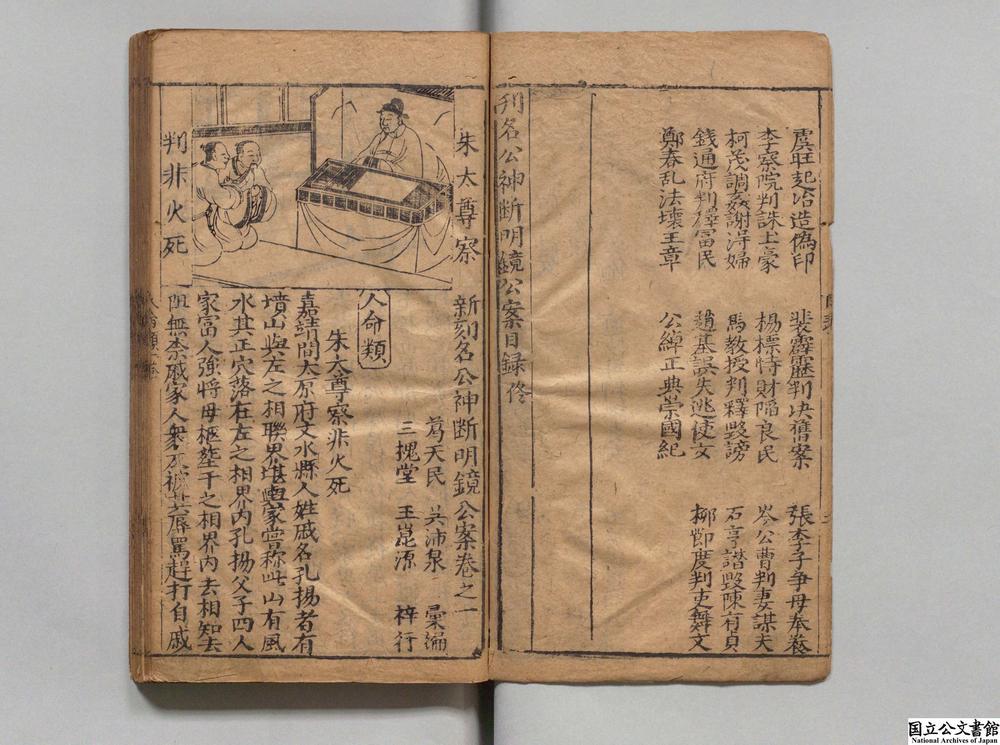 虞旺起冶造偽印　裴霹靂判决舊案　張李子争母奉養
李察院判誅土豪　楊標恃財陷良民　岑公曹判妻謀夫
柯茂調姦謝淂婦　馬教授判釋毀謗　石亨譖毀陳有貞
錢通府判釋冨民　趙基誤失逃使女　柳節度判吏舞文
鄭春乱法壞王章　公綽正典崇國紀
刊名公神断明鏡公案目録
朱太尊察
判非火死
新刻名公神断明鏡公案卷之一
葛天民　吳沛泉　彙編
三槐堂　王崑源　梓行
人命類
朱太尊察非火死
嘉靖間太原府文水縣人姓戚名孔揚者有
墳山與左之相聯界堪輿家嘗称此山有風
水其正穴落在左之相界内孔揚父子四人
家富人強將母柩塟于之相界内去相知去
阻無柰戚家人衆反被其辱罵趕打自戚
国立公文書館
National Archives of Japan